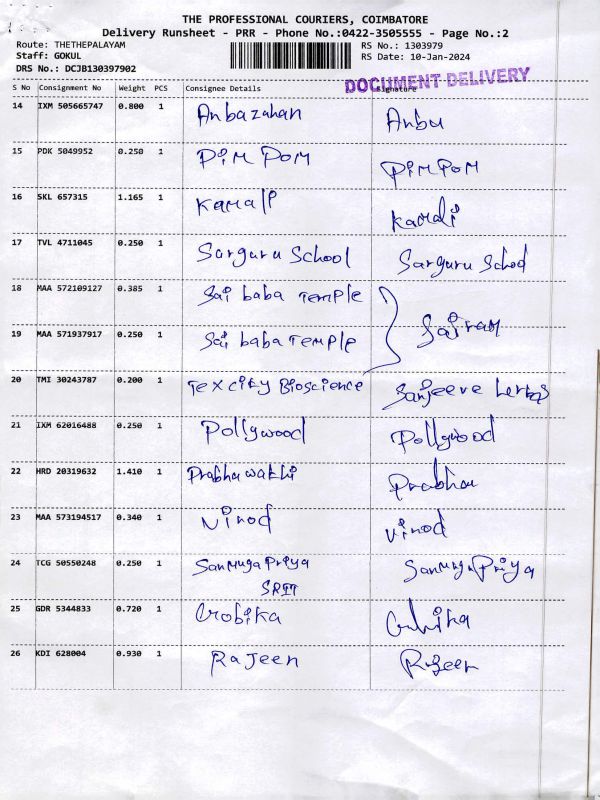 THE PROFESSIONAL COURIERS, COIMBATORE
Delivery Runsheet - PRR - Phone No.:0422-3505555 - Page No.:2
Route: THETHEPALAYAM RS No.: 1303979
Staff: GOKUL RS Date: 10-Jan-2024
DRS No.: DCJB130397902
DOCUMENT DELIVERY
S No Consignment No Weight PCS Consignee Details Signature
14 IXM 505665747 0.800 1 Anbazahan Anbu
15 PDK 5049952 0.250 1 PIM POM PIM POM
16 SKL 657315 1.165 1 Kamali Kamali
17 TVL 4711045 0.250 1 Sarguru School Sarguru School
18 MAA 572109127 0.385 1 Sai baba Temple
19 MAA 571937917 0.250 1 Sai baba Temple Sairam
20 TMI 30243787 0.200 1 Texcity Bioscience Sanjeeve
21 IXM 62016488 0.250 1 Pollywood Pollywood
22 HRD 20319632 1.410 1 Prabhawakhi Prabha
23 MAA 573194517 0.340 1 Vinod Vinod
24 TCG 50550248 0.250 1 Sanmuga Priya Sanmuga Priya
SRIT
25 GDR 5344833 0.720 1 Gobika
26 KDI 628004 0.930 1 Rajeen Rajeen